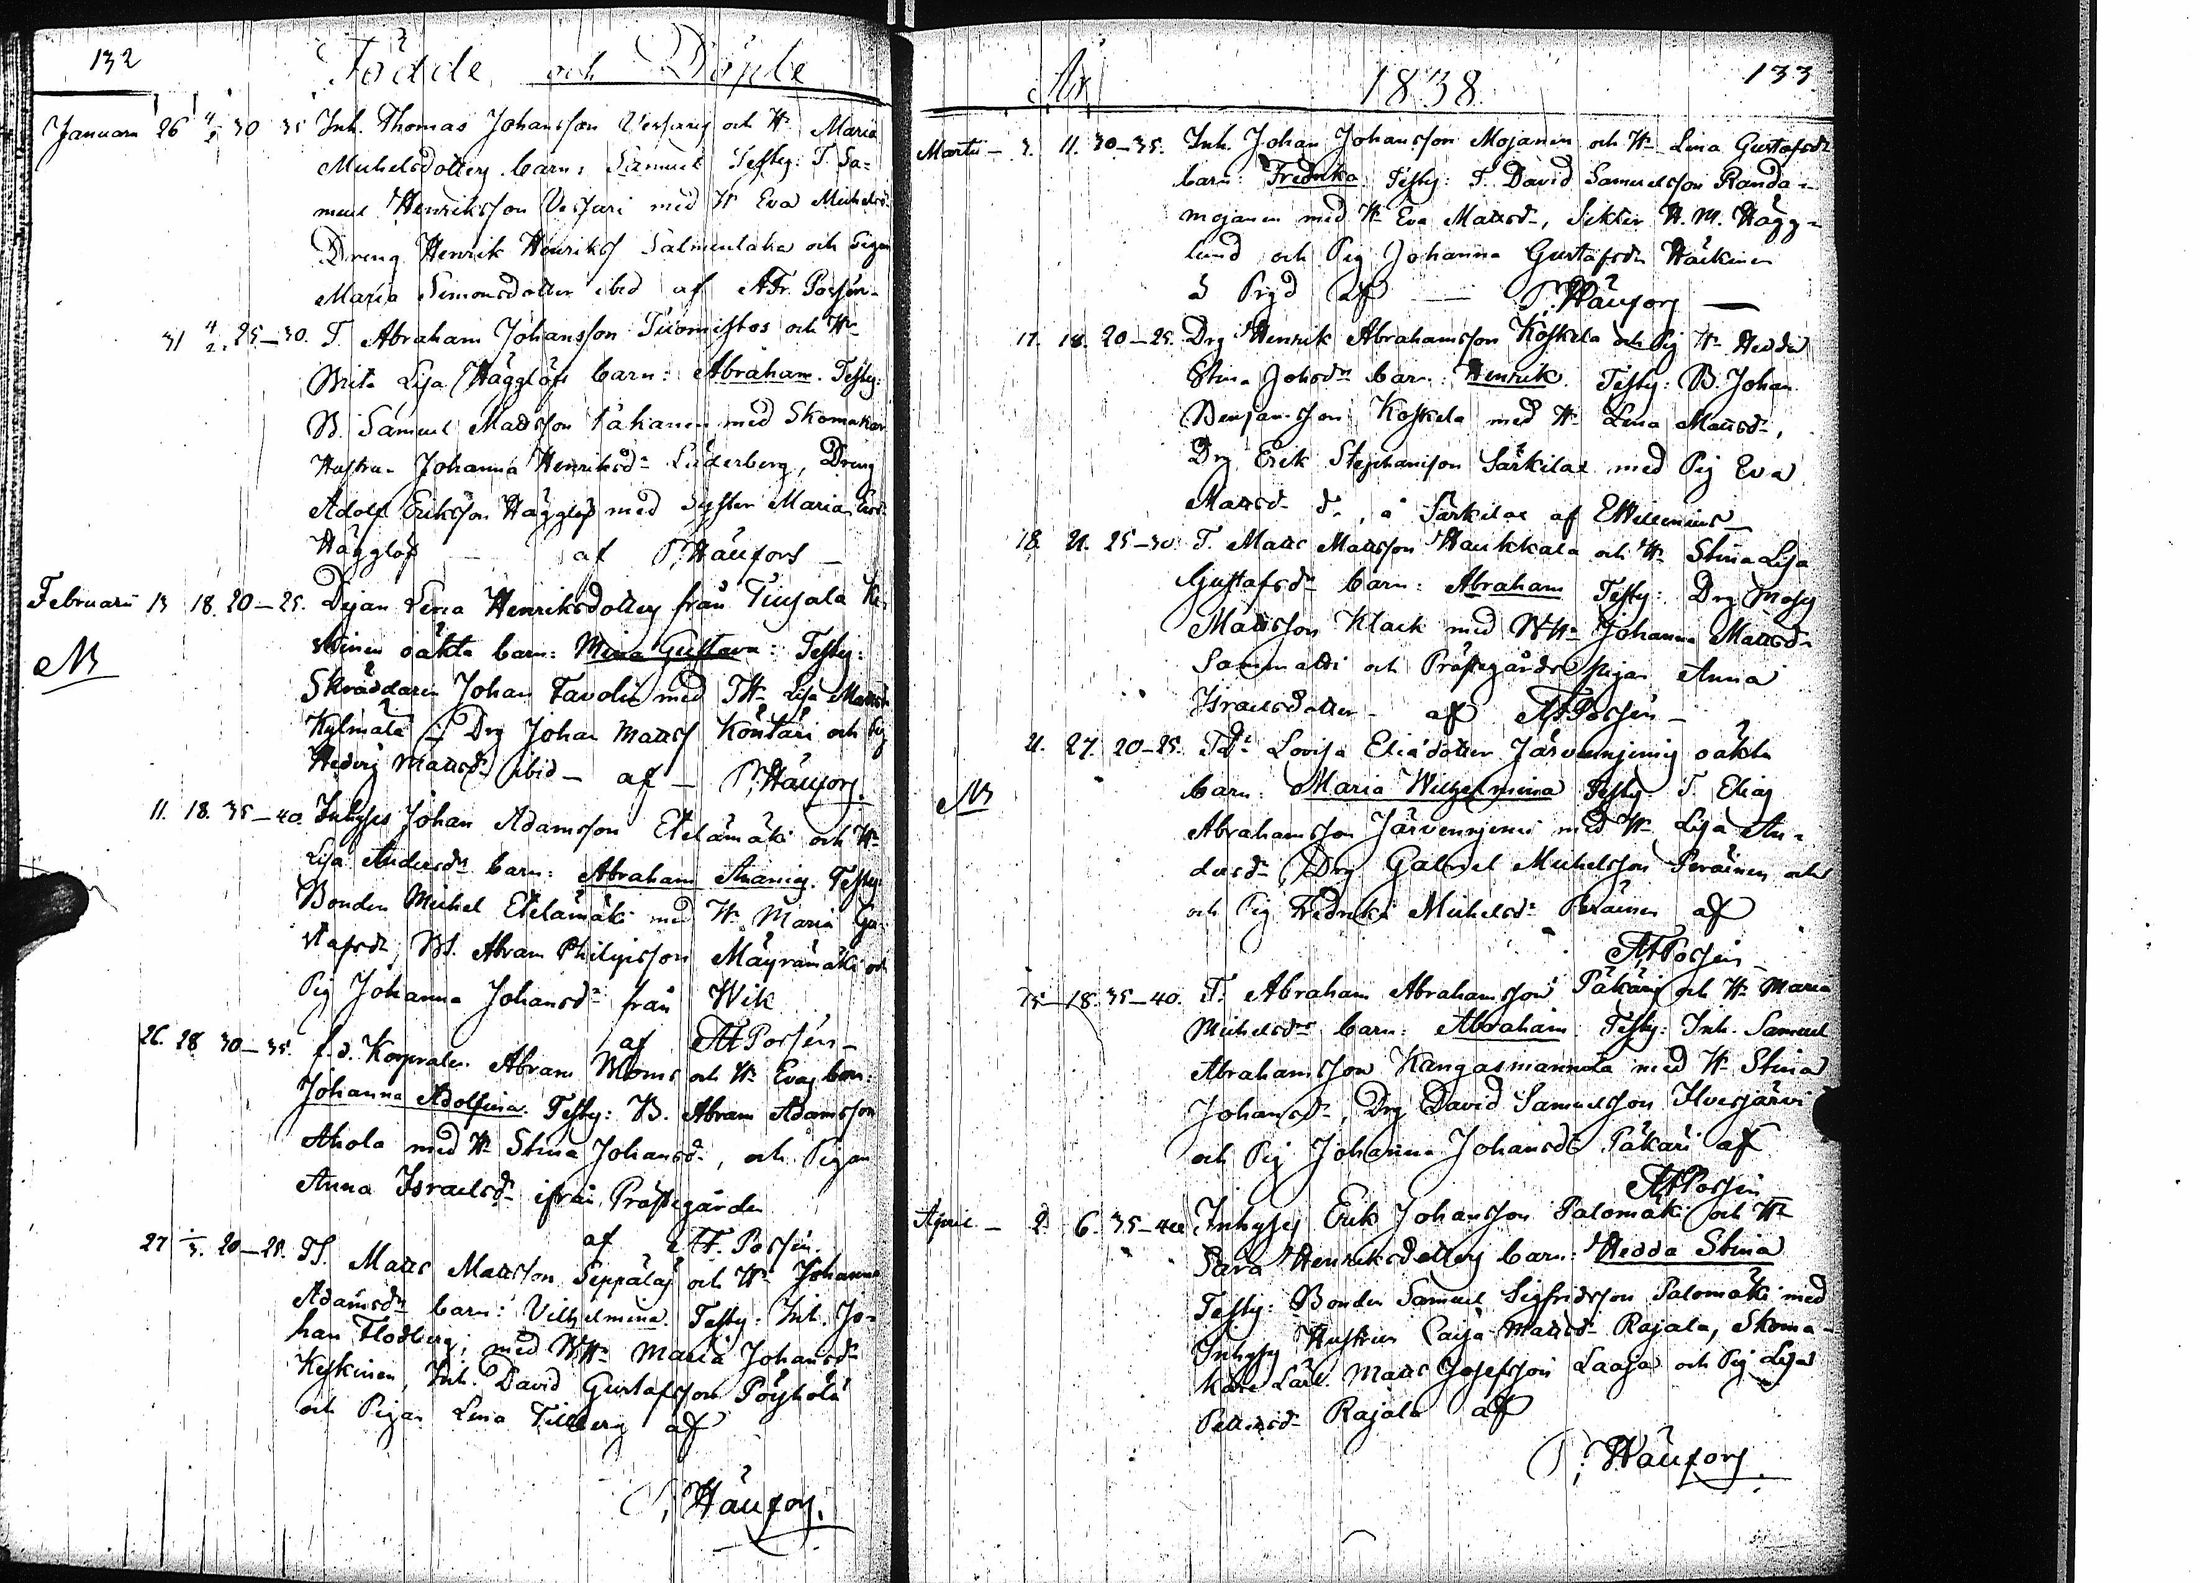 132
Födde och Döpte
Januari 26 4/2 30 35 Inh. Thomas Johansson Vessari och H. Maria
Michelsdotters barn: Samuel Testes: T. Sa-
muel Henriksson Vessari med H. Eva Michelsd.
Dreng Henrik Henriks Salmenlaka och Pigan
Maria Simonsdotter ibid af AFr. Possén
31 4/2. 25–30. T. Abraham Johansson Tuomistos och H.
Brita Lisa Hägglöfs barn: Abraham. Testes:
B. Samuel Mattsson med Skomakar
Hustrun Johanna Henriksd. Söderberg, Dreng
Adolf Eriksson Hägglöf med Syster Maria
Hägglöf af P. Häufors
Februarii 13 18. 20–25. Dejan Lena Henriksdotters från
oäkta barn: Mina Gustava: Testes:
NB
Skräddaren Johan Tavolin med TH. Lisa Mattsd.
Kylmälä Drg Johan Matts Köntäri och Pig
Hedvig Mattsd. ibid – af – P. Häufors.
11. 18. 35–40. Inhyses Johan Adamsson Etelämäki och H.
Lisa Andersd. barn: Abraham Ananias. Testes:
Bonden Michel Etelämäki med H. Maria Gu-
stafsd., Abram Philipsson Mäyrämäki och
Pig Johanna Johansd. från Wik
af AF Possén –
26. 28 30–35. f.d. Korpralen Abram Moms och H. Evas barn:
Johanna Adolfina. Testes: B. Abram Adamsson
Ahola med H. Stina Johansd., och Pigan
Anna Israelsd. ifrån Prästgården
af AF. Possén.
27 1/3. 20–25. Matts Mattsson Seppäläs och H. Johanna
Adamsd. barn: Vilhelmina. Testes: Inh. Jo-
han Flodberg, med BH. Maria Johansd.
Keskinen, Inh. David Gustafsson Pöyhölä
och Pigan Lena Tillberg af
P. Häufors.
År 1838. 133.
Martii – 3. 11. 30–35. Inh. Johan Johansson Mojanen och H. Lina Gustafsd.
barn: Fredrika Testes: T. David Samuelsson Randa-
mojanen med H. Eva Mattsd., Sekter H. M. Hägg-
lund och Pig Johanna Gustafsd. Häkkinen
af P. Häufors –
17. 18. 20–25. Drg Henrik Abrahamsson Koskela och H. Hedda
Stina Johsd. barn: Henrik. Testes: B. Johan
Benjamsson Koskela med H. Lena Mattsd.,
Drg Erik Stephansson Särkilax med Pig Eva
Mattsd., å Särkilax af EWillenius
18. 21. 25–30. T. Matts Mattsson Haukkala och H. Stina Lisa
Gustafsd. barn: Abraham Testes: Drg Moses
Mattsson Klack med BH. Johanna Mattsd.
Sammaldi och Prästegårds Pigan Anna
Israelsdotter – af AF Possén –
21. 27. 20–25. TD. Lovisa Eliädotter Järvennjemis oäkta
NB
barn: Maria Wilhelmina Testes: T. Elias
Abrahamsson Järvennjemi med H. Lisa An-
dersd., Drg Gabriel Michelsson Peräinen och
och Pig Fredrika Michelsd. Peräinen af
AF Possén –
15 – 18. 35–40. T. Abraham Abrahamsson Päkäris och H. Maria
Michelsd. barn: Abraham. Testes: Inh. Samuel
Abrahamsson Kangasmannola med H. Stina
Johansd., Drg David Samuelsson Ilvesjärvi
och Pig Johanna Johansd. Päkäri af
AF Possén
April – 2. 6. 35–40 Inhyses Erik Johansson Palomäki och H.
Sara Henriksdotters barn: Hedda Stina
Testes: Bonden Samuel Sigfridsson Palomäki med
Inhyses Hustrun Caisa Mattsd. Rajala, Skoma-
kare Lärl. Matts Josefsson Laaja och Pig Lisa
Pettersd. Rajala af
P. Häufors.